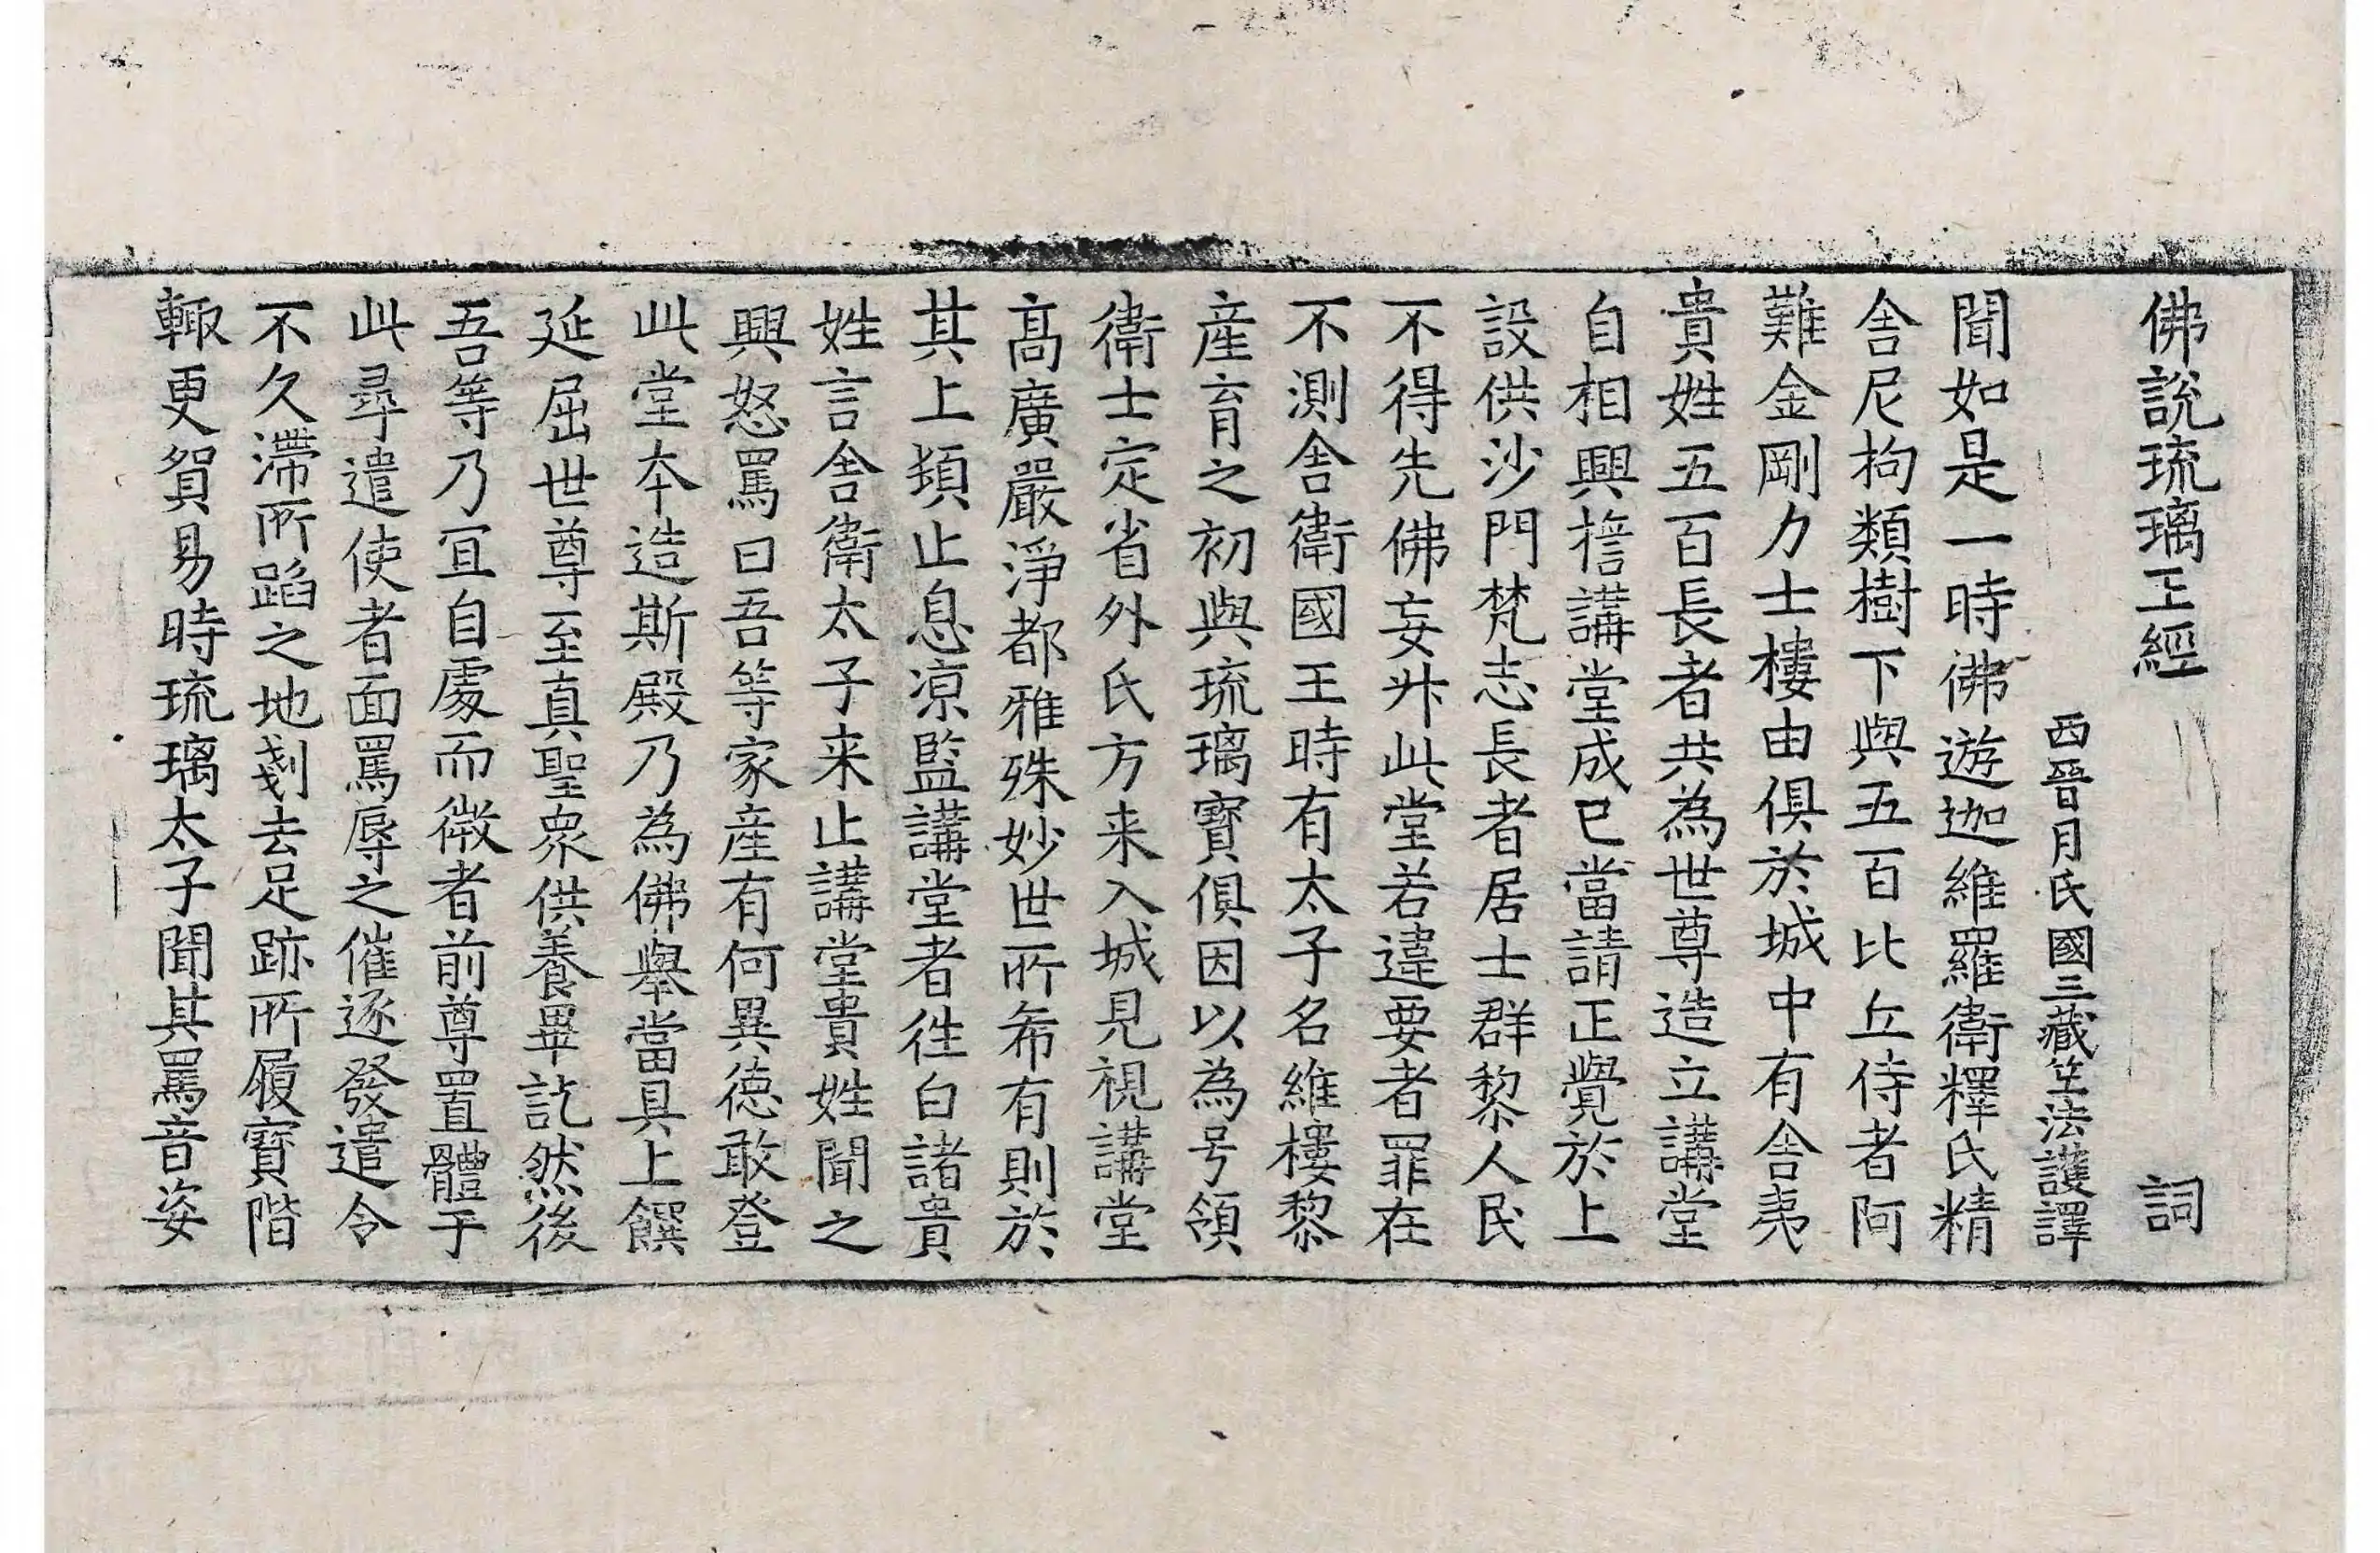 佛說琉璃王經　詞
西晉月氏國三藏竺法護譯
聞如是一時佛遊迦維羅衛釋氏精
舍尼拘類樹下與五百比丘侍者阿
難金剛力士樓由俱於城中有舍夷
貴姓五百長者共為世尊造立講堂
自相興擔講堂成已當請正覺於上
設供沙門梵志長者居士群黎人民
不得先佛妄升此堂若違要者罪在
不測舍衛國王時有太子名維樓黎
産育之初與琉璃寶俱因以為号領
衛士定省外氏方来入城見視講堂
髙廣嚴淨都雅殊妙世所希有則於
其上頓止息凉監講堂者徃白諸貴
姓言舍衛太子来止講堂貴姓聞之
興怒罵曰吾等家産有何異德敢登
此堂本造斯殿乃為佛舉當具上饌
延屈世尊至真聖衆供養畢訖然後
吾等乃冝自處而微者前尊置體于
此尋遣使者面罵辱之催逐發遣令
不久滯所蹈之地剗去足跡所履寶階
輙更貿易時琉璃太子聞其罵音姿